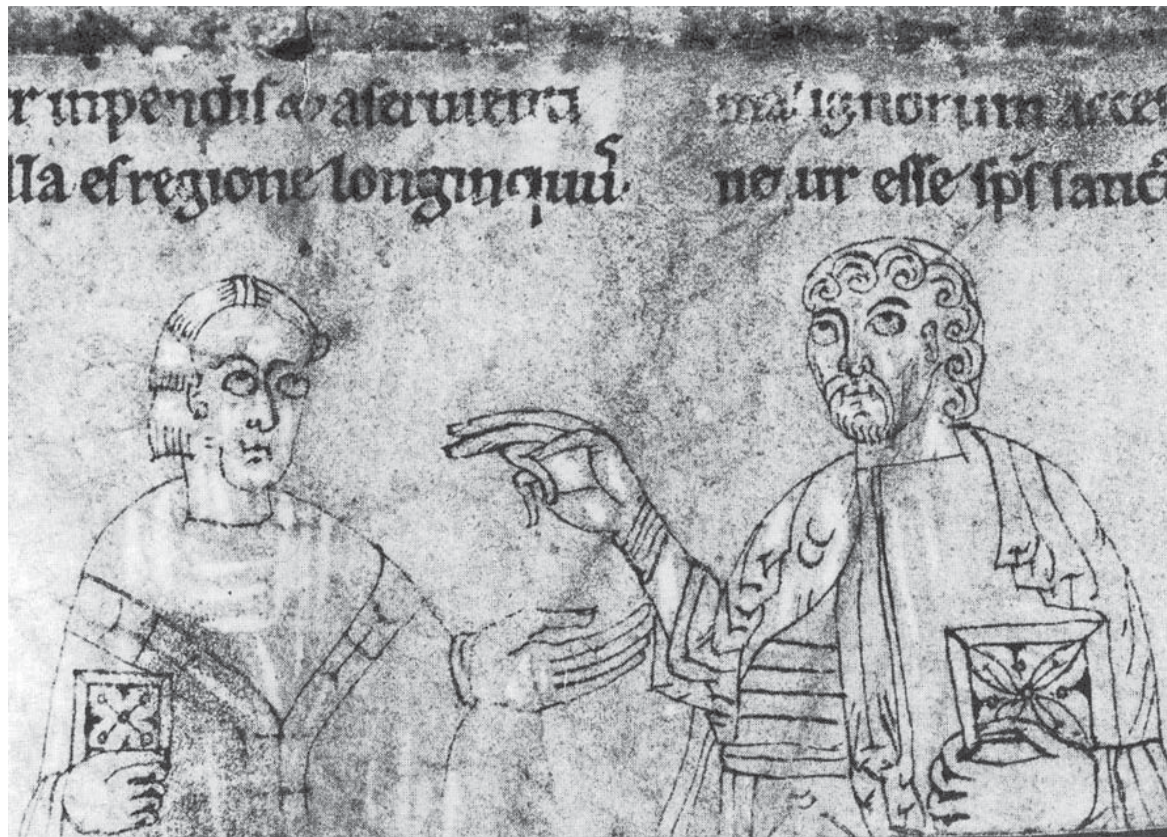 r inpendis & a seruienti
lla es regione longinquũ.
malignorum accet
ne ur esse sps sanct